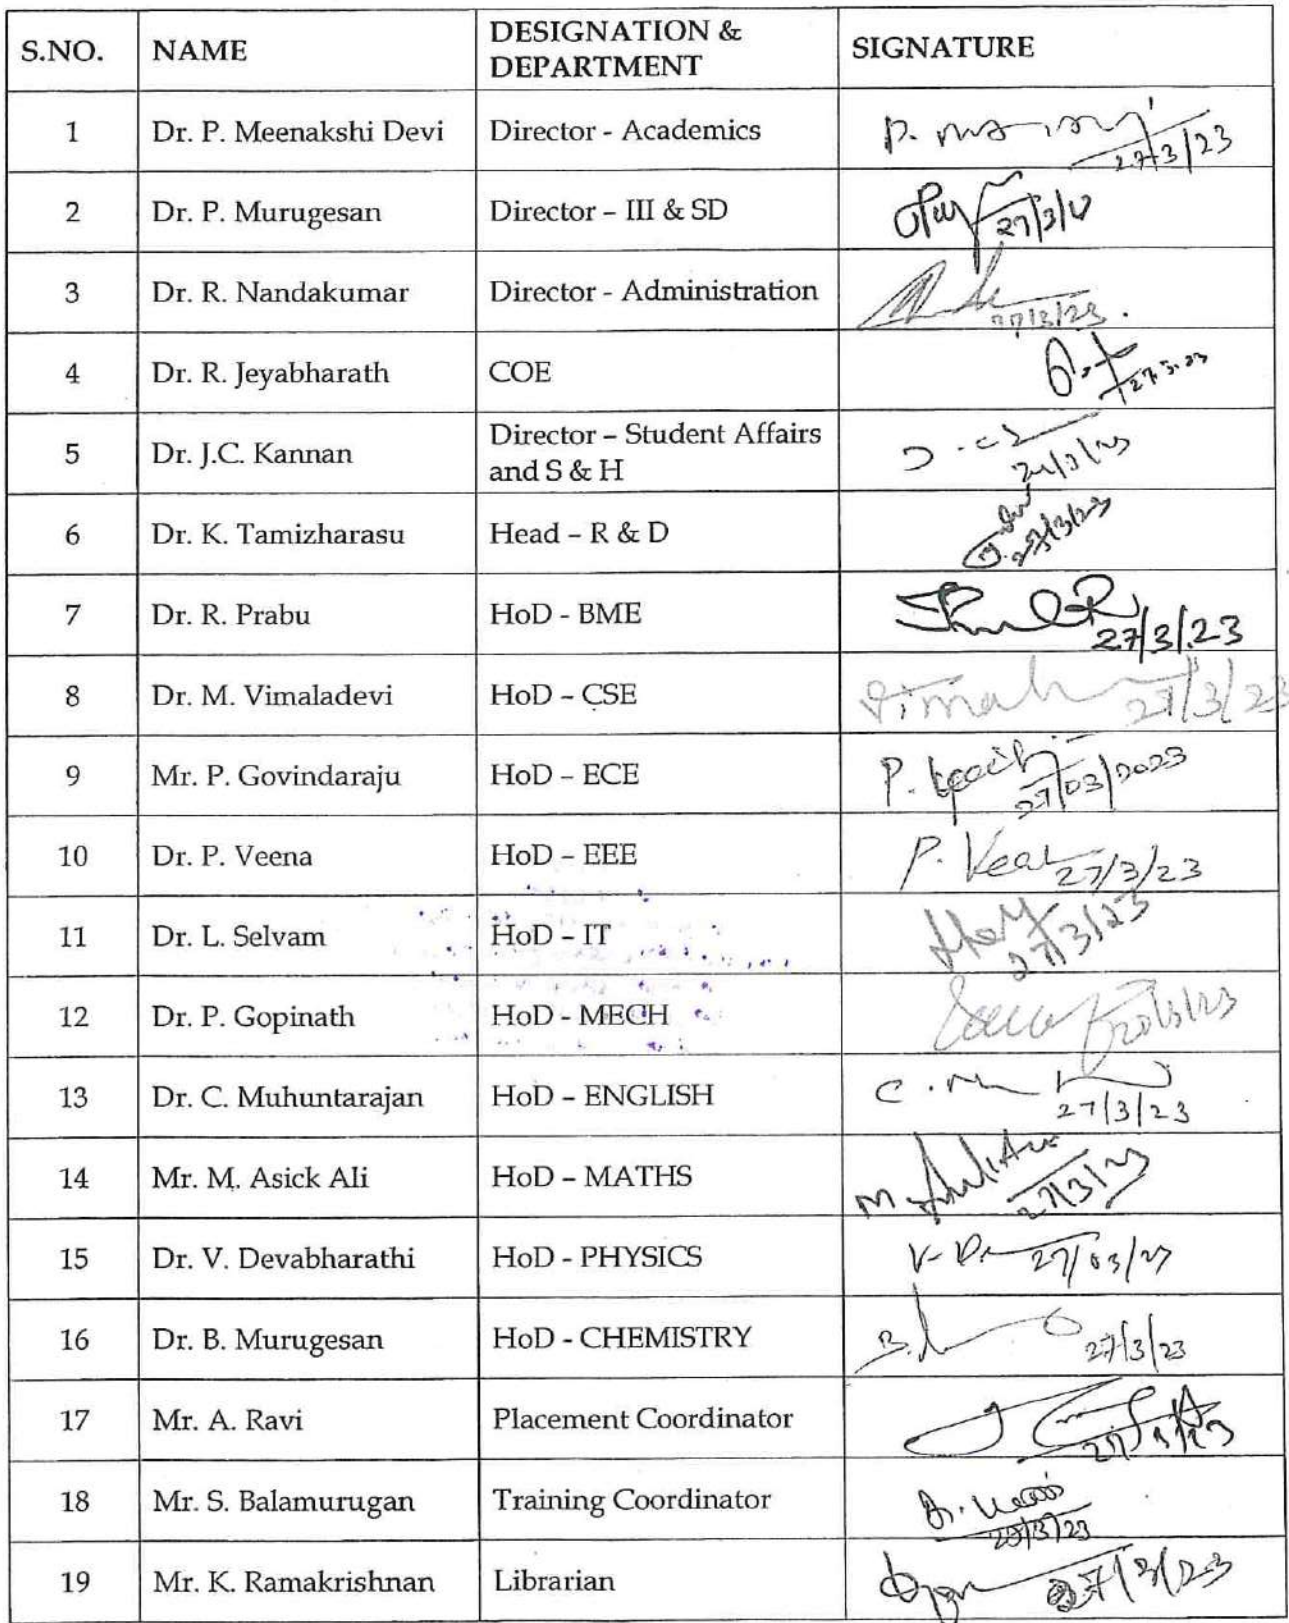 S.NO. NAME DESIGNATION & DEPARTMENT SIGNATURE
1 Dr. P. Meenakshi Devi Director - Academics P. 27/3/23
2 Dr. P. Murugesan Director – III & SD 27/3/
3 Dr. R. Nandakumar Director - Administration 27/3/23.
4 Dr. R. Jeyabharath COE 27.3.23
5 Dr. J.C. Kannan Director – Student Affairs
and S & H
6 Dr. K. Tamizharasu Head – R & D 27/3/23
7 Dr. R. Prabu HoD - BME 27/3/23
8 Dr. M. Vimaladevi HoD – CSE 27/3/23
9 Mr. P. Govindaraju HoD – ECE P. 27/03/2023
10 Dr. P. Veena HoD – EEE P. 27/3/23
11 Dr. L. Selvam HoD – IT 27/3/23
12 Dr. P. Gopinath HoD - MECH
13 Dr. C. Muhuntarajan HoD – ENGLISH C. 27/3/23
14 Mr. M. Asick Ali HoD – MATHS M. 27/3/23
15 Dr. V. Devabharathi HoD - PHYSICS V. 27/03/23
16 Dr. B. Murugesan HoD - CHEMISTRY B. 27/3/23
17 Mr. A. Ravi Placement Coordinator
18 Mr. S. Balamurugan Training Coordinator
19 Mr. K. Ramakrishnan Librarian 27/3/23